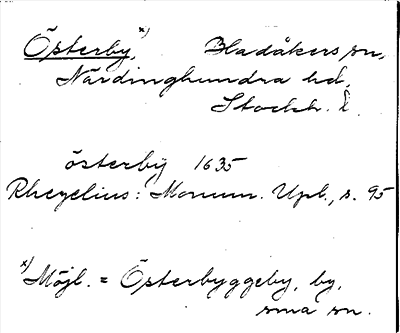 Österby, x) Bladåkers sn,
Närdinghundra hd,
Stockh. l.
österby 1635
Rhezelius: Monum. Upl., s. 95
x) Möjl. = Österbyggeby, by,
sma sn.